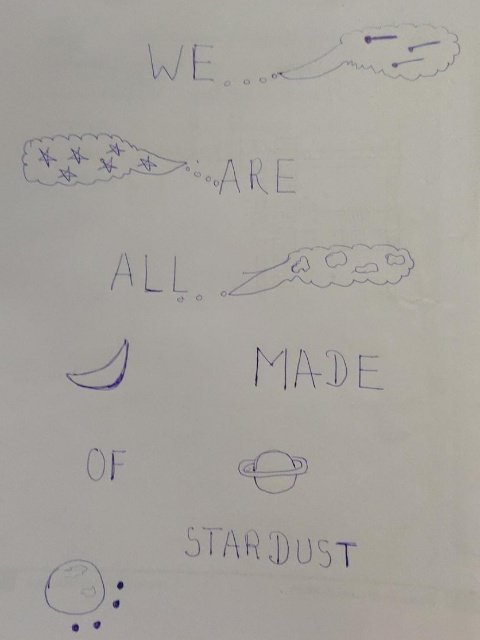 WE
ARE
ALL
MADE
OF
STARDUST